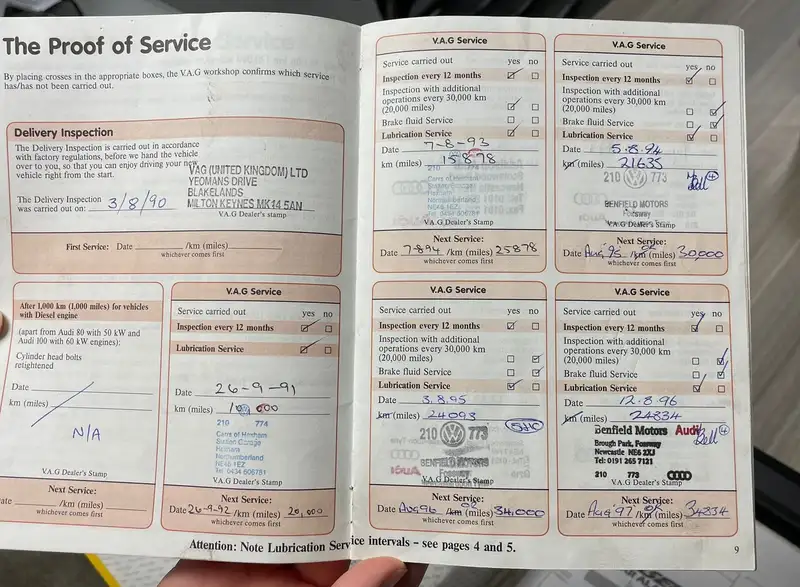 The Proof of Service
By placing crosses in the appropriate boxes, the V.A.G workshop confirms which service
has/has not been carried out.
Delivery Inspection
The Delivery Inspection is carried out in accordance
with factory regulations, before we hand the vehicle
over to you, so that you can enjoy driving your new
vehicle right from the start.
VAG (UNITED KINGDOM) LTD
YEOMANS DRIVE
BLAKELANDS
MILTON KEYNES MK14 5AN
The Delivery Inspection
was carried out on: 3/8/90
V.A.G Dealer's stamp
First Service: Date /km (miles)
whichever comes first
After 1,000 km (1,000 miles) for vehicles
with Diesel engine
(apart from Audi 80 with 50 kW and
Audi 100 with 60 kW engines):
Cylinder head bolts
retightened
Date
km (miles)
N/A
V.A.G Dealer's Stamp
Next Service:
ate /km (miles)
whichever comes first
V.A.G Service
Service carried out yes no
Inspection every 12 months
Lubrication Service
Date 26-9-91
km (miles)
210 774
Carrs of Hexham
Hexham
Northumberland
NE46 1EZ
Tel 0434
V.A.G Dealer's Stamp
Next Service
Date 26-9-92 /km (miles) 20,000
whichever comes first
V.A.G Service
Service carried out yes no
Inspection every 12 months
Inspection with additional
operations every 30,000 km
(20,000 miles)
Brake fluid Service
Lubrication Service
Date 7-8-93
km (miles) 15878
210
Carrs of Hexham
Hexham
Northumberland
V.A.G Dealer's Stamp
Next Service:
Date 7-8-94 /km (miles) 25878
whichever comes first
V.A.G Service
Service carried out yes no
Inspection every 12 months
Inspection with additional
operations every 30,000 km
(20,000 miles)
Brake fluid Service
Lubrication Service
Date 5.8.94
km (miles) 21635
210 773
BENFIELD MOTORS
Fossway
V.A.G Dealer's Stamp
Next Service:
Date Aug 95 /km (miles) 30,000
whichever comes first
V.A.G Service
Service carried out yes no
Inspection every 12 months
Inspection with additional
operations every 30,000 km
(20,000 miles)
Brake fluid Service
Lubrication Service
Date 3.8.95
km (miles) 24093
210 773
BENFIELD MOTORS
Fossway
V.A.G Dealer's Stamp
Next Service:
Date Aug 96 /km (miles) 34,000
whichever comes first
V.A.G Service
Service carried out yes no
Inspection every 12 months
Inspection with additional
operations every 30,000 km
(20,000 miles)
Brake fluid Service
Lubrication Service
Date 12.8.96
km (miles) 24834
Benfield Motors Audi
Brough Park, Fossway
Newcastle NE6 2XJ
Tel: 0191 265 7121
210 773
V.A.G Dealer's Stamp
Next Service:
Date Aug 97 /km (miles) 34834
whichever comes first
Attention: Note Lubrication Service intervals – see pages 4 and 5.
9